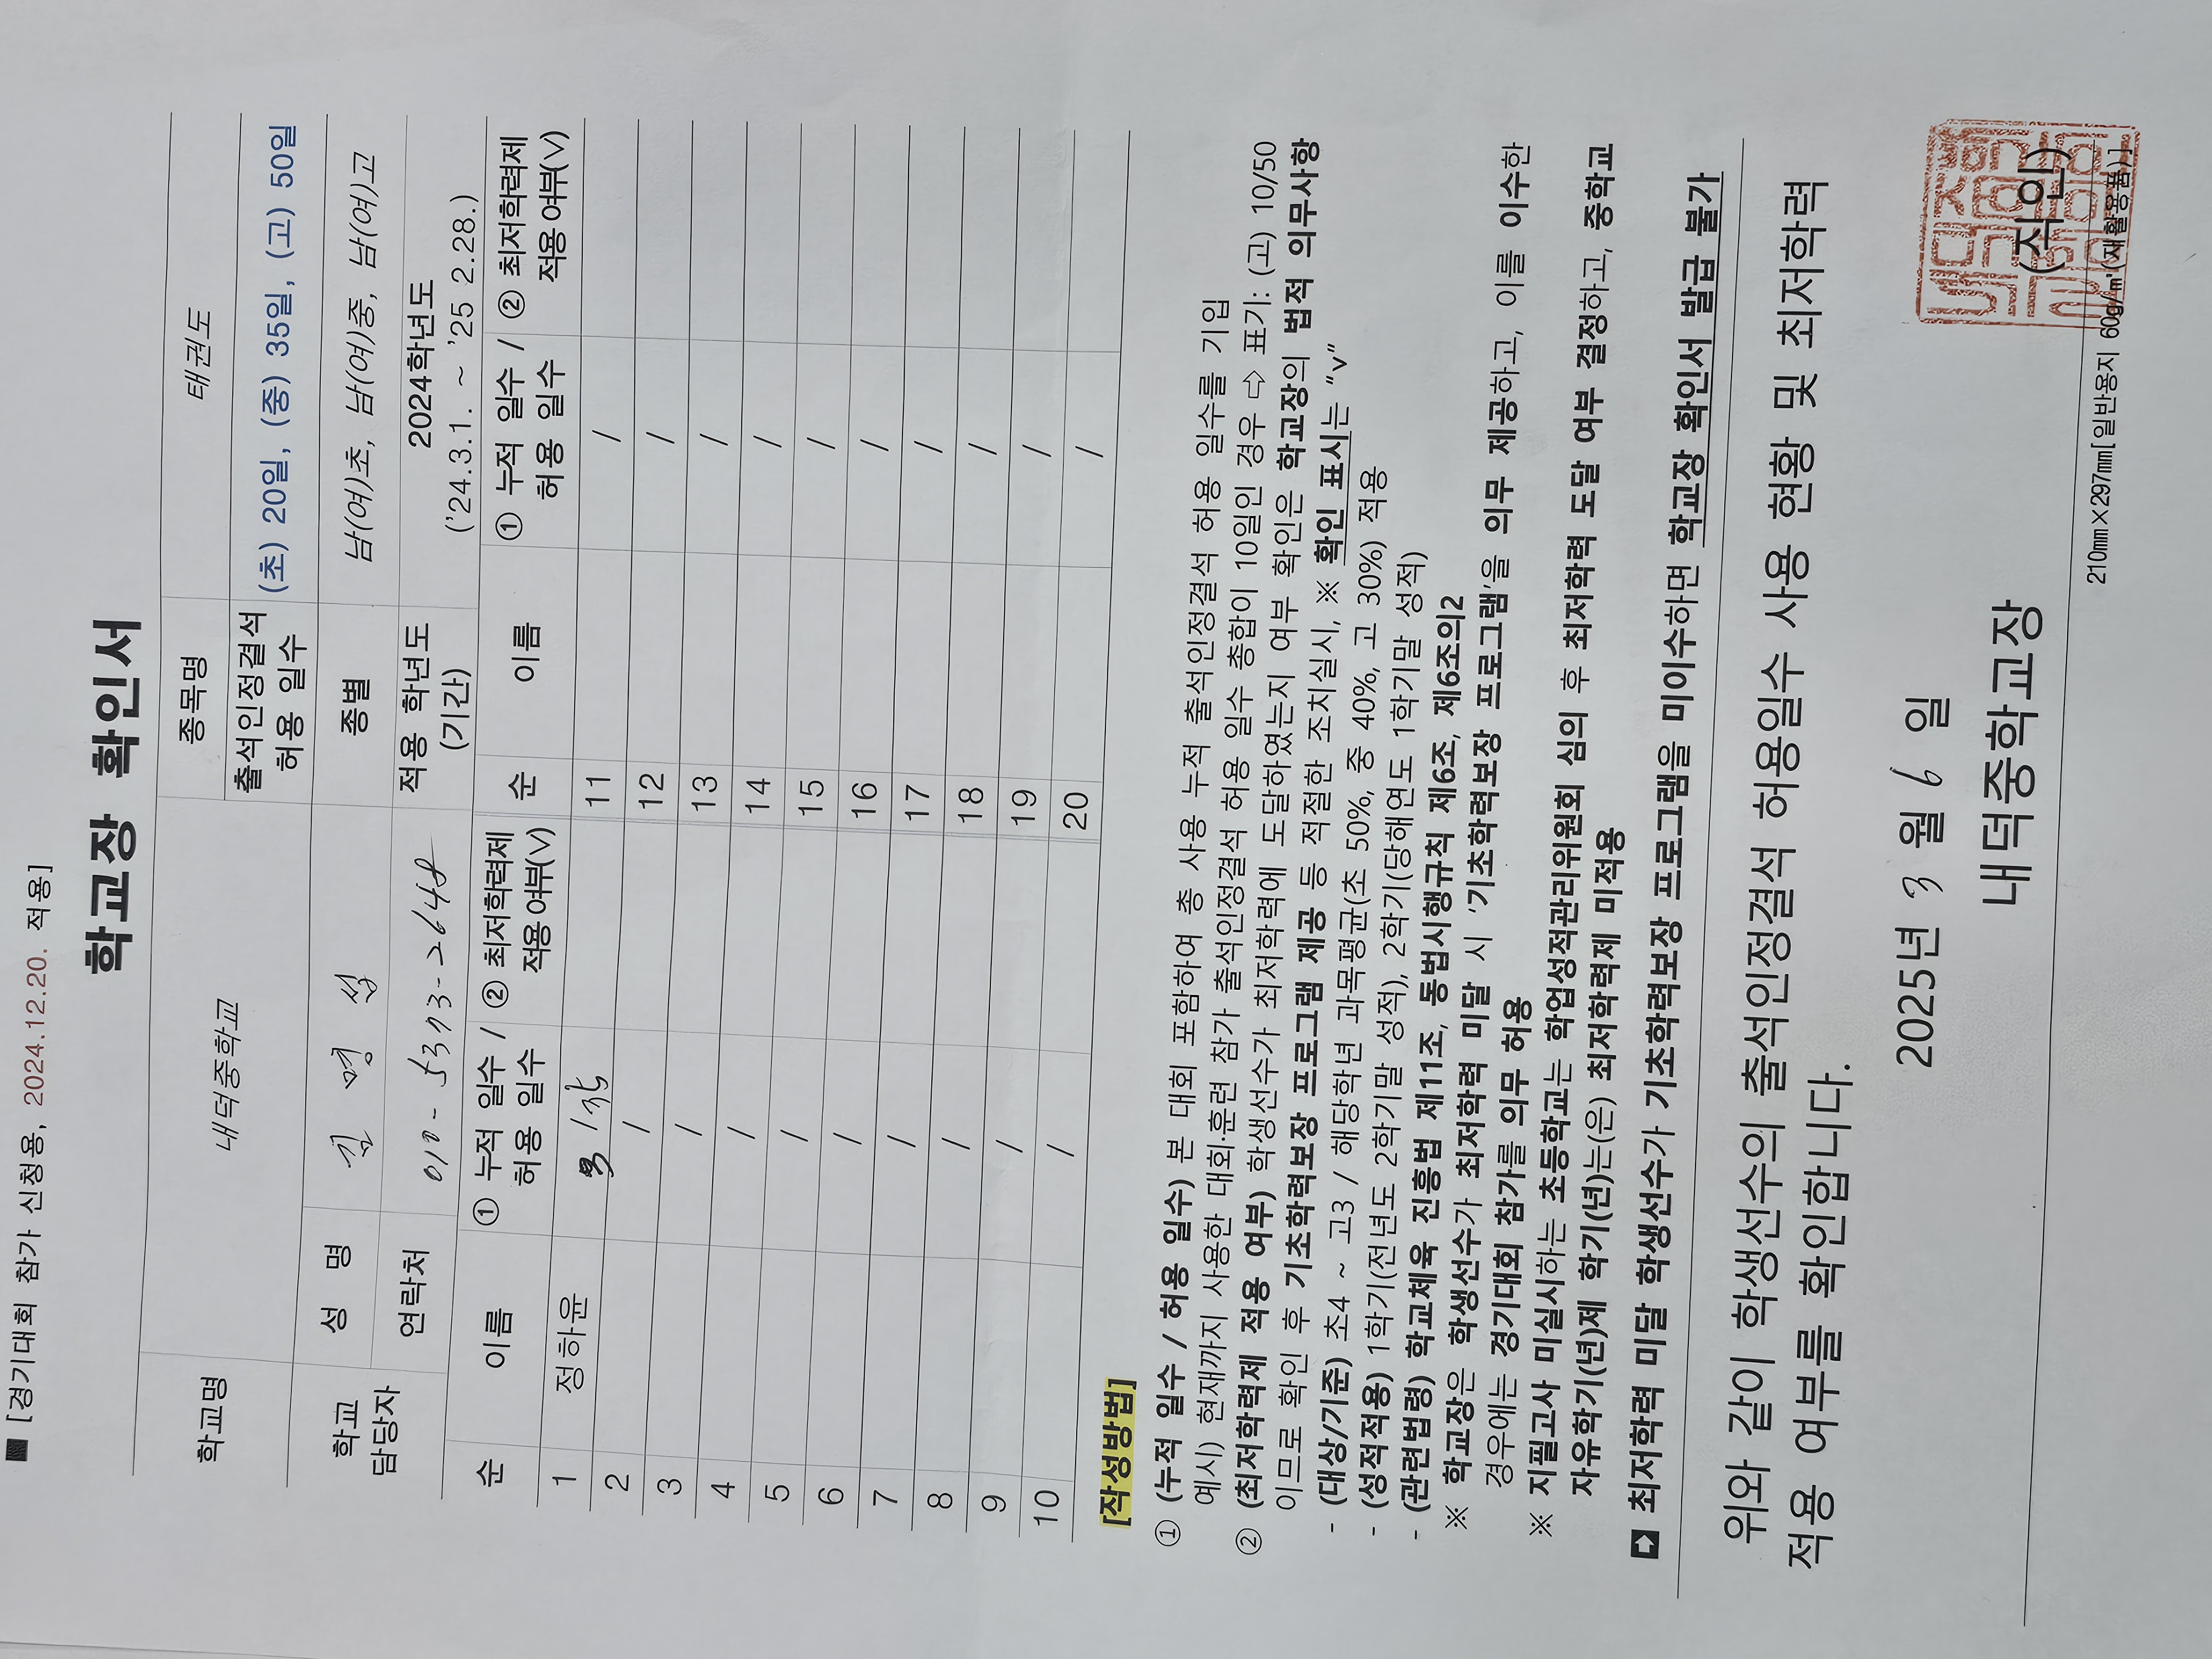 ■ [경기대회 참가 신청용, 2024.12.20. 적용]
학교장 확인서
학교명 내덕중학교 종목명 태권도
출석인정결석 허용 일수 (초) 20일, (중) 35일, (고) 50일
학교 담당자 성 명 종별 남(여)초, 남(여)중, 남(여)고
연락처 적용 학년도 (기간) 2024학년도 ('24.3.1. ~ '25 2.28.)
순 이름 ① 누적 일수 / 허용 일수 ② 최저학력제 적용 여부(V) 순 이름 ① 누적 일수 / 허용 일수 ② 최저학력제 적용 여부(V)
1 정하윤 / 11 /
2 / 12 /
3 / 13 /
4 / 14 /
5 / 15 /
6 / 16 /
7 / 17 /
8 / 18 /
9 / 19 /
10 / 20 /
[작성방법]
① (누적 일수 / 허용 일수) 본 대회 포함하여 총 사용 누적 출석인정결석 허용 일수를 기입
예시) 현재까지 사용한 대회·훈련 참가 출석인정결석 허용 일수 총합이 10일인 경우 ⇨ 표기: (고) 10/50
② (최저학력제 적용 여부) 학생선수가 최저학력에 도달하였는지 여부 확인은 학교장의 법적 의무사항
이므로 확인 후 기초학력보장 프로그램 제공 등 적절한 조치실시, ※ 확인 표시는 "v"
- (대상/기준) 초4 ~ 고3 / 해당학년 과목평균(초 50%, 중 40%, 고 30%) 적용
- (성적적용) 1학기(전년도 2학기말 성적), 2학기(당해연도 1학기말 성적)
- (관련법령) 학교체육 진흥법 제11조, 동법시행규칙 제6조, 제6조의2
※ 학교장은 학생선수가 최저학력 미달 시 '기초학력보장 프로그램'을 의무 제공하고, 이를 이수한
경우에는 경기대회 참가를 의무 허용
※ 지필고사 미실시하는 초등학교는 학업성적관리위원회 심의 후 최저학력 도달 여부 결정하고, 중학교
자유학기(년)제 학기(년)는(은) 최저학력제 미적용
➡ 최저학력 미달 학생선수가 기초학력보장 프로그램을 미이수하면 학교장 확인서 발급 불가
위와 같이 학생선수의 출석인정결석 허용일수 사용 현황 및 최저학력
적용 여부를 확인합니다.
2025년 3 월 6 일
내덕중학교장 (직인)
210mm×297mm[일반용지 60g/㎡(재활용품)]